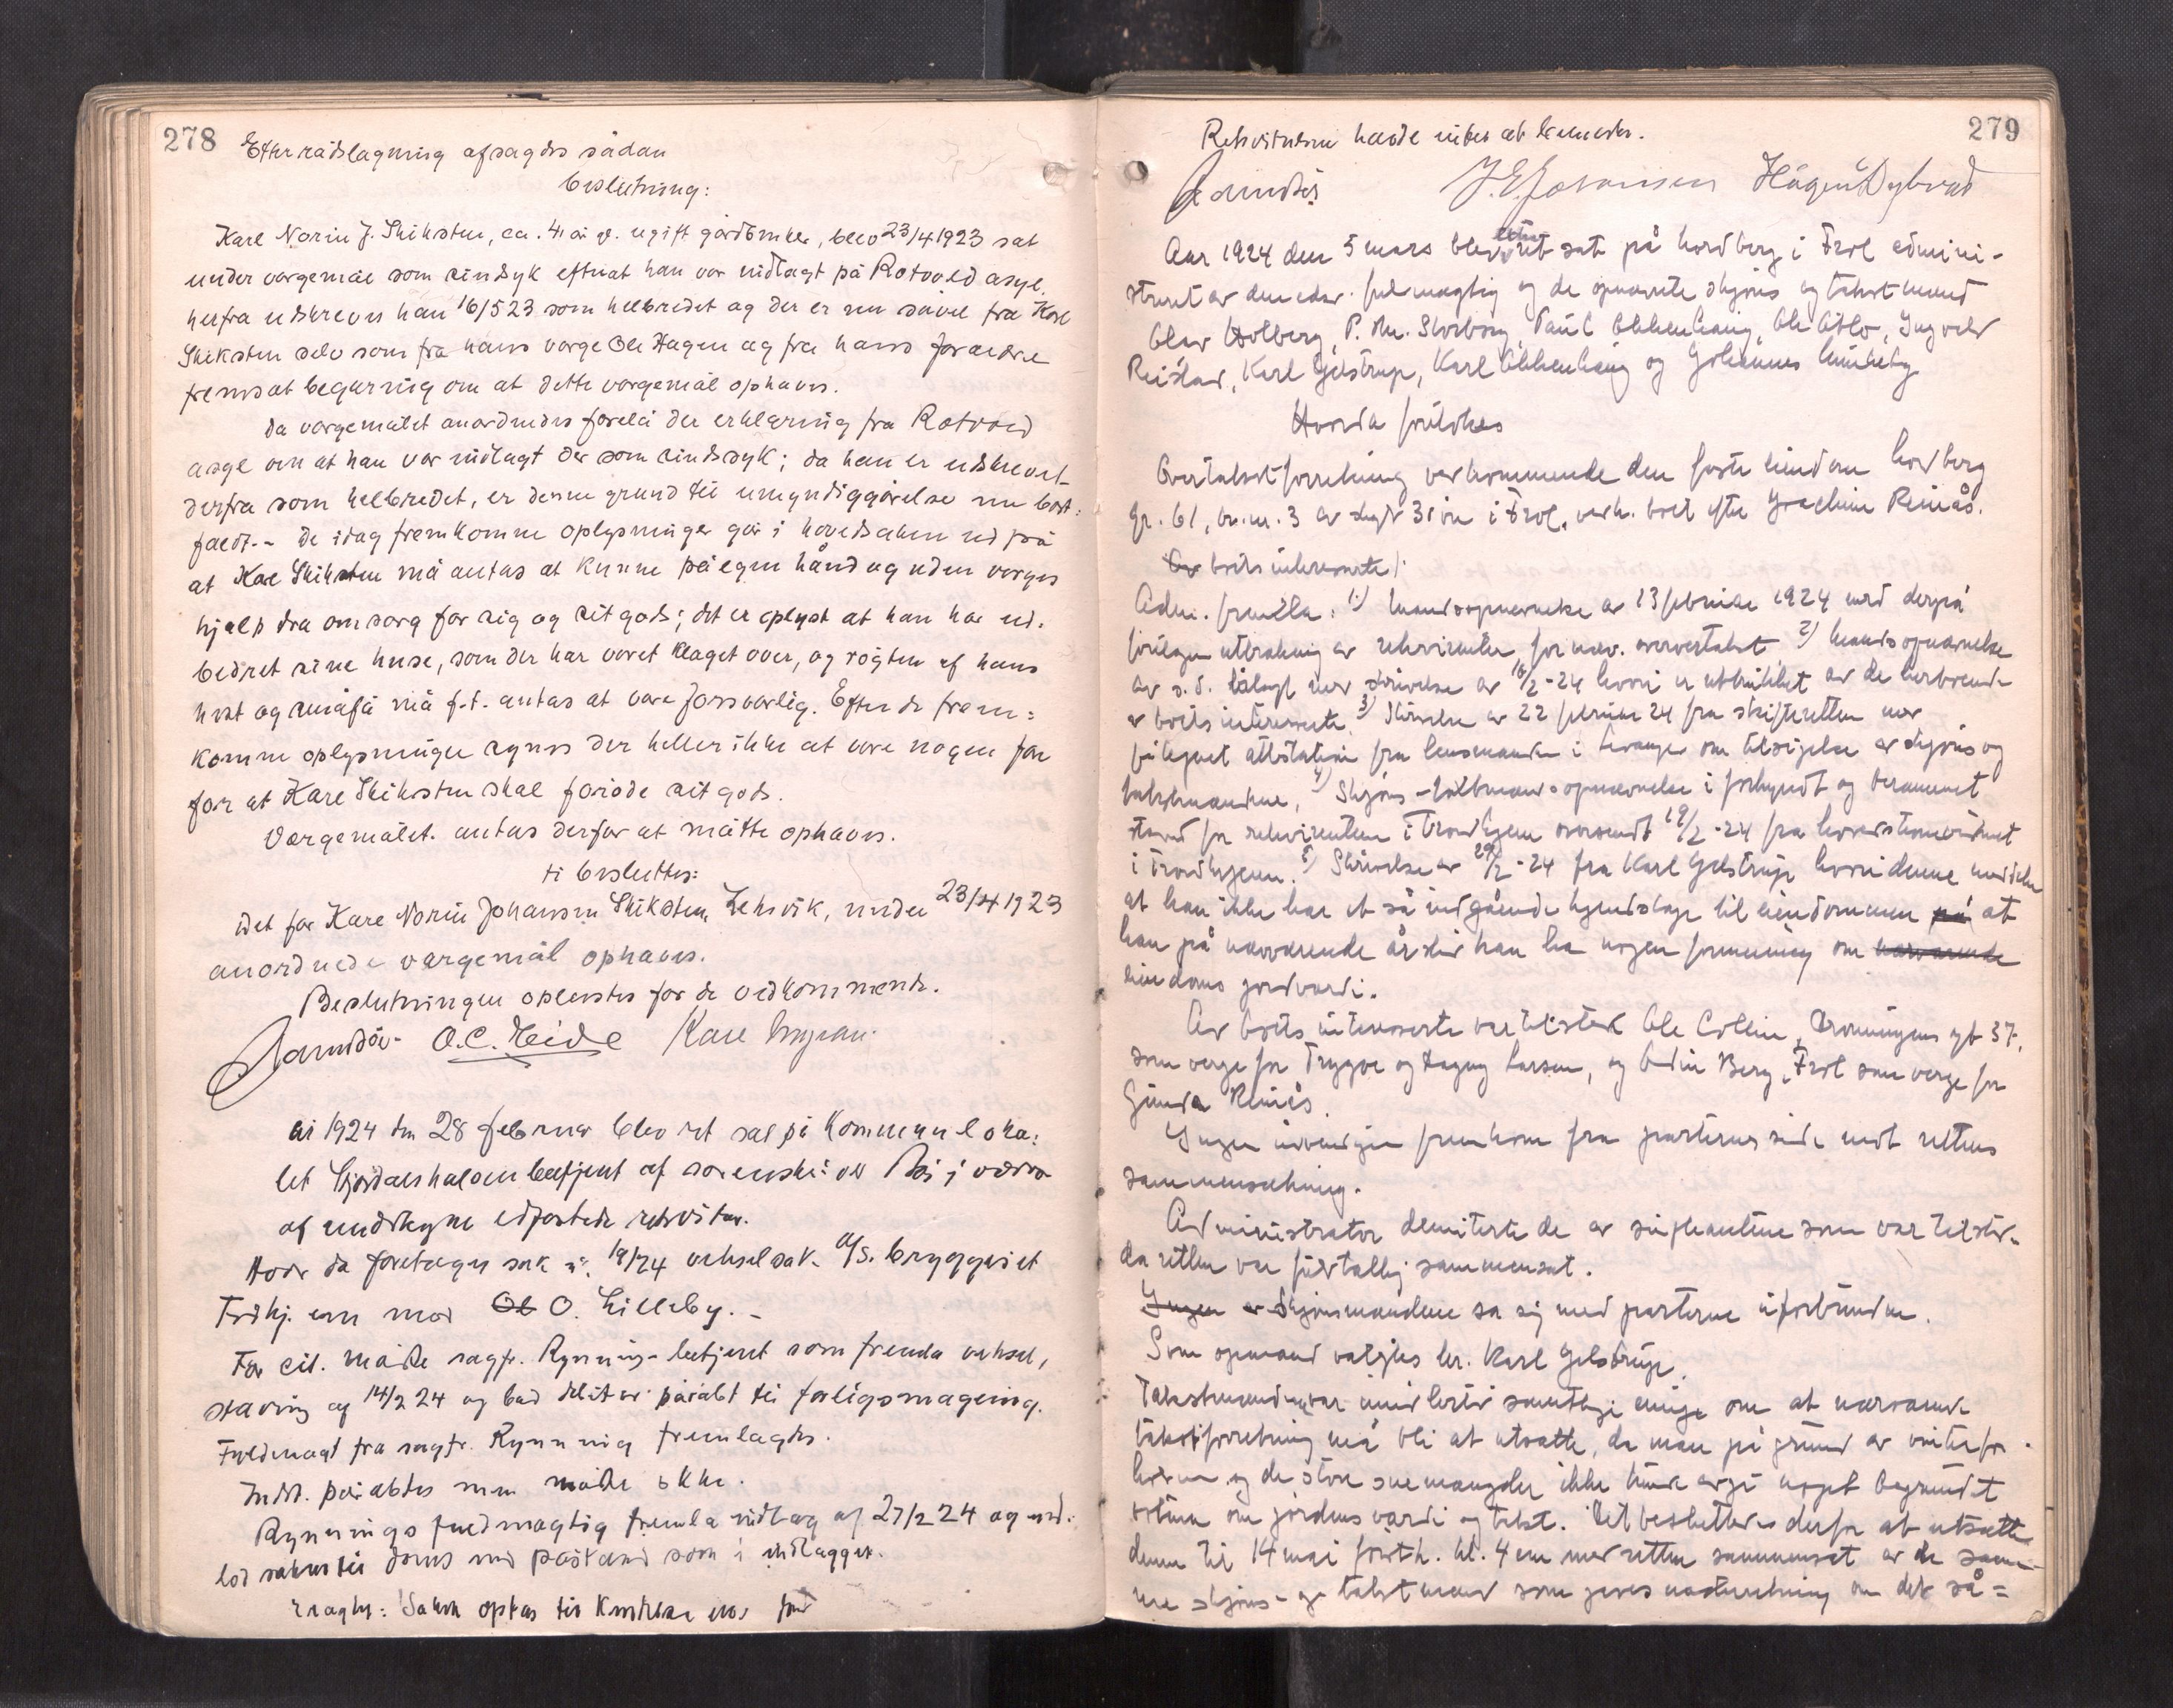 278
Efter rådslagning afsagdes sådan
beslutning:
Kare Norin J. Skiksten, ca. 41 år g. ugift gårdbruker, blev 23/4 1923 sat
under vergemål som sindsyk efterat han var indlagt på Rotvold asyl.
herfra udskreves han 16/5 23 som helbredet og der er nu såvel fra Kare
Skiksten selv som fra hans verge Ole Hagen og fra hans forældre
fremsat begæring om at dette vergemål ophæves.
Da vergemålet anordnedes forelå der erklæring fra Rotvold
asyl om at han var indlagt der som sindssyk; da han er udskrevet
derfra som helbredet, er denne grund til umyndiggjørelse nu bort-
faldt. - De idag fremkomne oplysninger går i hovedsaken ud på
at Kare Skiksten må antas at kunne på egen hånd og uden verges
hjælp dra omsorg for sig og sit gods; det er oplyst at han har ud-
bedret sine huse, som der har været klaget over, og røgten af hans
hest og småfæ må f.t. antas at være forsvarlig. Efter de frem-
komne oplysninger synes der heller ikke at være nogen fare
for at Kare Skiksten skal forøde sit gods.
Vergemålet antas derfor at måtte ophæves.
ti besluttes:
Det for Kare Norin Johansen Skiksten, Leksvik, under 23/4 1923
anordnede vergemål ophæves.
Beslutningen oplæstes for de vedkommende.
O. C. Heide Kare
År 1924 den 28 februar blev ret sat på Kommuneloka-
let Stjørdalshalsen betjent af sorenskriver i overvær
af undertegnede edfæstede retsvitner.
Hvor da foretages sak nr. 19/24 vekselsak A/S. Bryggeriet
Trdhj. em mod Ol O. Lilleby. -
For cit. møtte sagfr. Rynning - betjent som fremla veksel,
stævning af 14/2 24 og bad debitor påråbt til forligsmægling.
Fuldmagt fra sagfr. Rynning fremlagdes.
Indst. påråbtes men møtte ikke.
Rynnings fuldmægtig fremla indlæg af 27/2 24 og ind-
lod saken til doms med påstand som i indlægget.
Eragtet: Saken optas til kjendelse eller dom
279
Rekvirenten havde intet at bemerke.
J. E. Johansen Hågen Dybvad
Aar 1924 den 5 mars blev extraret sat på Nordberg i Frol admini-
streret av den edsv. fuldmægtig og de opnævnte skjøns og takstmænd
Olav Holberg, P. M. Skorborg, Paul Okkenhaug, Ole Oklo, Ingvald
Reistad, Karl Gjelstrup, Karl Okkenhaug og Johannes
Hvorda foretokes
Overtakstforretning vedkommende den faste eiendom Nordberg
gr. 61, br.nr. 3 av skyld 31 øre i Frol, verk. boet efter Joachine Reinås.
Av boets interesserte:
Adm. fremla: 1) mandsopnævnelse av 13 februar 1924 med derpå
påtegnet uttrækning av rekvirenten for nævn. overtakst 2) mandsopnævnelse
av s. d. bilagt med skrivelse av 16/2-24 hvori er uttrukket av de herværende
av boets interesserte. 3) Skrivelse av 22 februar 24 fra skifteretten med
påtegnet attestation fra lensmanden i Levanger om tilsigelse av skjøns og
takstmændene, 4) Skjøns-valtmands-opnævnelse i forhyndt og berammet
stand for rekvirenten i Trondhjem oversendt 19/2-24 fra hovedstevnevidnet
i Trondhjem. 5) Skrivelse av 29/2-24 fra Karl Gjelstrup hvori denne meddeler
at han ikke har et så indgående kjendskap til eiendommen på at
han på nuværende årstid kan ha nogen formening om nærværende
eiendoms jordværdi.
Av boets interesserte var tilstede Ole Collin, Dronningens gt 37,
som verge for Trygve og Dagny Larsen, og Odin Berg, Frol som verge for
Gunda Reinås.
Ingen indvendinger fremkom fra parternes side mot rettens
sammensætning.
Administrator dimiterte de av suppleantene som var tilstede
da retten var fuldtallig sammensat.
Ingen av Skjønsmændene sa sig med parterne uforbundne.
Som opmand valgtes hr. Karl Gjelstrup.
Takstmændene var imidlertid samtlige enige om at nærværende
takstforretning må bli at utsætte, da man på grund av vinterfor-
holdene og de store snemængder ikke kunde avgi noget begrundet
votum om jordens værdi og takst. Det besluttedes derfor at utsætte
denne til 14 mai førstk. kl. 4 em med retten sammensat av de sam-
me skjøns- og takstmænd som gives underretning om det så=